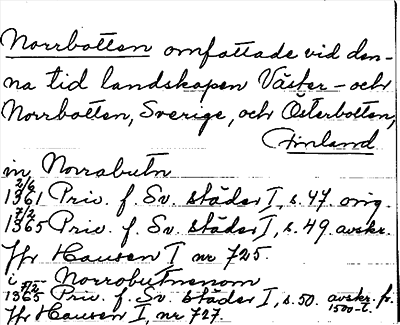 Norrbotten omfattade vid den-
na tid landskapen Väster- och
Norrbotten, Sverige, och Österbotten,
Finland
in Norrabutn
2/6
1361 Priv. f. Sv. städer I, s. 47. orig.
7/2
1365 Priv. f. Sv. städer I, s. 49. avskr.
Jfr Hausen I nr 725.
i — Norrobutnenom
7/2
1365 Priv. f. Sv. städer I, s. 50. avskr. fr.
1500-t.
Jfr Hausen I, nr 727.